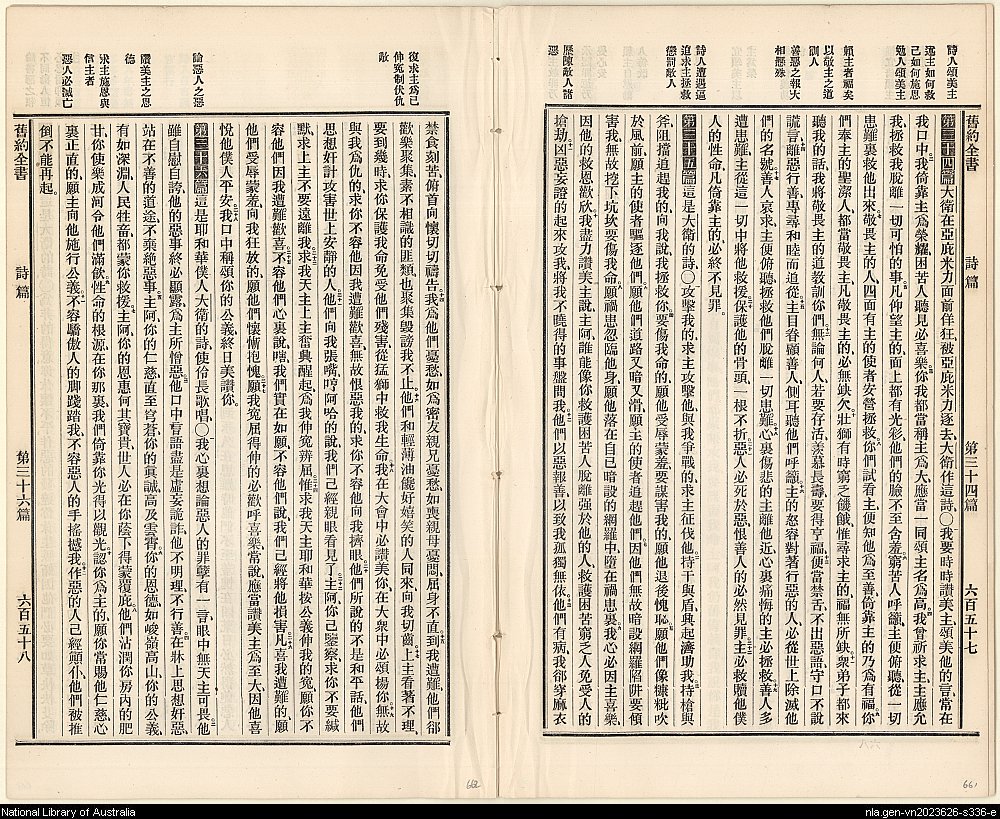 詩人頌美主
述主如何救
己如何施恩
勉人頌美主
賴主者福矣
以敬主之道
訓人
善惡之報大
相懸殊
詩人遭遇逼
迫求主拯救
懲罰敵人
歷陳敵人諸
惡
舊約全書 詩篇 第三十四篇 六百五十七
第三十四篇 大衛在亞庇米力面前佯狂被亞庇米力逐去大衛作這詩○我要時時讚美主頌美他的言常在
我口中我倚靠主爲榮耀困苦人聽見必喜樂你我都當稱主爲大應當一同頌主名爲高我曾祈求主主應允
我拯救我脫離一切可怕的事凡仰望主的面上都有光彩他們的臉不至含羞窮苦人呼籲主便俯聽從一切
患難裏救他出來敬畏主的人四面有主的使者安營拯救你們試看主便知他爲至善倚靠主的乃爲有福你
們奉主的聖潔人都當敬畏主凡敬畏主的必無缺欠壯獅有時窮乏饑餓惟尋求主的福無所缺衆弟子都來
聽我的話我將敬畏主的道教訓你們無論何人若要存活羨慕長壽要得亨福便當禁舌不出惡語守口不說
謊言離惡行善專尋和睦而追從主目眷顧善人側耳聽他們呼籲主的怒容對著行惡的人必從世上除滅他
們的名號善人哀求主便俯聽拯救他們脫離一切患難心裏傷悲的主離他近心裏痛悔的主必拯救善人多
遭患難主從這一切中將他救援保護他的骨頭一根不折惡人必死於惡恨善人的必然見罪主必救贖他僕
人的性命凡倚靠主的必終不見罪
第三十五篇 這是大衛的詩○攻擊我的求主攻擊他與我爭戰的求主征伐他持干與盾興起濟助我持槍與
斧阻擋追趕我的向我說我拯救你要傷我命的願他受辱蒙羞要謀害我的願他退後愧恥願他們像糠粃吹
於風前願主的使者驅逐他們願他們道路又暗又滑願主的使者追趕他們因他們無故暗設網羅陷阱要傾
害我無故挖下坑坎要傷我命願禍患忽臨他身願他落在自己暗設的網羅中墮在禍患裏我心必因主喜樂
因他的救恩歡欣我盡力讚美主說主阿誰能像你救護困苦人脫離強於他的人救護困苦窮乏之人免受人的
搶劫凶惡妄證的起來攻我將我不曉得的事盤問我他們以惡報善以致我孤獨無依他們有病我郤穿麻衣
661
復求主爲已
伸冤制伏仇
敵
論惡人之惡
讚美主之恩
德
求主施恩與
信主者
惡人必滅亡
禁食刻苦俯首向懷切切禱告我爲他們憂愁如爲密友親兄憂愁如喪親母憂悶屈身不直到我遭難他們郤
歡樂聚集素不相識的匪類也聚集毀謗我不止他們和輕薄油饞好嬉笑的人同來向我切齒上主看著不理
要到幾時求你保護我命免受他們殘害從猛獅中救我生命我在大會中必讚美你在大衆中必頌揚你無故
與我爲仇的求你不容他因我遭難歡喜無故恨惡我的求你不容他向我擠眼他們所說的不是和平話他們
思想奸計攻害世上安靜的人他們向我張嘴哼阿哈的說我們已經親眼看見了主阿你已鑒察求你不要緘
默求上主不要遠離我求我天主上主奮興醒起爲我伸冤辨屈惟求我天主耶和華按公義伸我的冤願你不
容他們因我遭難歡喜不容他們心裏說嗐我們實在如願不容他們說我們已經將他損害凡喜我遭難的願
他們受辱蒙羞向我狂放的願他們懷慚抱愧願我冤屈得伸的必歡呼喜樂常說應當讚美主爲至大因他喜
悅他僕人平安我口中稱頌你的公義終日美讚你
第三十六篇 這是耶和華僕人大衛的詩使伶長歌唱○我心裏想論惡人的罪孽有一言眼中無天主可畏他
雖自慰自誇他的惡事終必顯露爲主所憎惡他口中言語盡是虛妄詭詐他不明理不行善在牀上思想奸惡
站在不善的道途不棄絕惡事主阿你的仁慈直至穹蒼你的眞誠高及雲霄你的恩德如峻嶺高山你的公義
有如深淵人民牲畜都蒙你救援主阿你的恩惠何其寶貴世人必在你蔭下得蒙覆庇他們沾潤你房內的肥
甘你使樂成河令他們滿飲性命的根源在你那裏我們倚靠你光得以觀光認你爲主的願你常賜他仁慈心
裏正直的願主向他施行公義不容驕傲人的脚踐踏我不容惡人的手搖撼我作惡的人已經顛仆他們被推
倒不能再起
舊約全書 詩篇 第三十六篇 六百五十八
662
National Library of Australia
nla.gen-vn2023626-s336-e